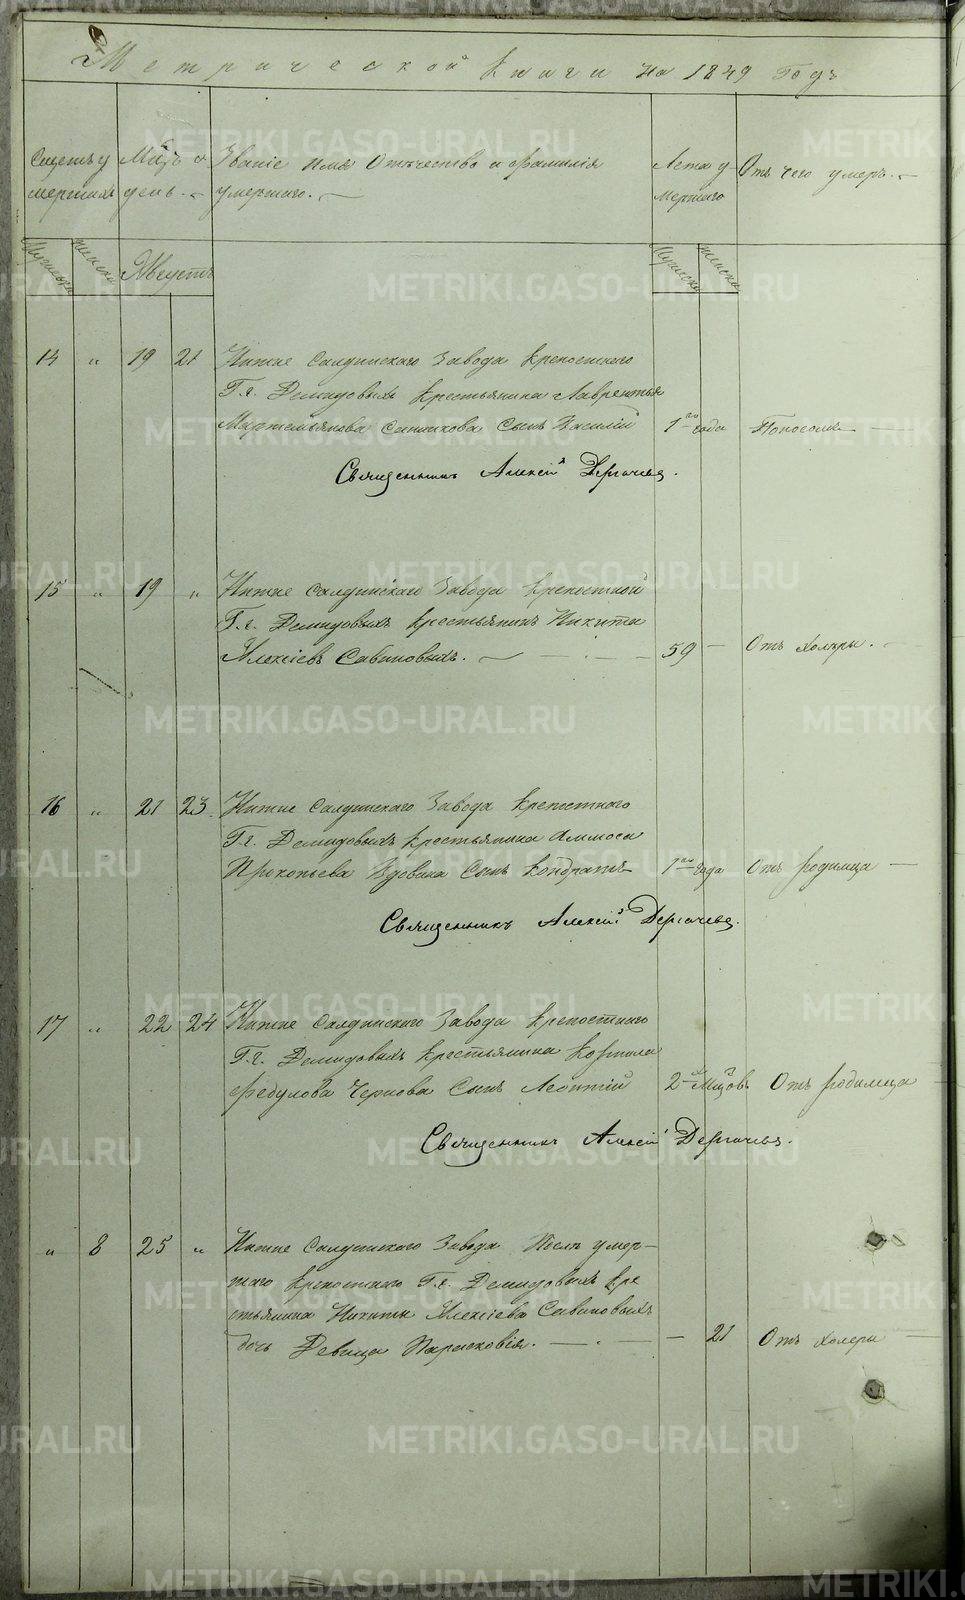 Метрической книги на 1849 Годъ
Счетъ у
мершихъ
Мцъ и
день.
Званіе имя Отчество и фамилія
умершаго.
Лета у
мершаго
Отъ чего умеръ.
Мужеска
Женска
Августъ
Мужеска
Женска
14 " 19 21 Нижне Салдинскаго Завода крепостнаго
Г.г. Демидовыхъ крестьянина Лаврентья
Мартемьянова Санникова Сынъ Василій 1 го года Поносомъ
Священникъ Алексій Дергачевъ.
15 " 19 " Нижне Салдинскаго Завода крепостной
Г.г. Демидовыхъ крестьянинъ Никита
Алексіевъ Савиновыхъ. 59 — Отъ холеры.
16 " 21 23 Нижне Салдинскаго Завода крепостнаго
Г.г. Демидовыхъ крестьянина Аммоса
Прокопьева Вдовина Сынъ Кондратъ 1 го года Отъ родимца
Священникъ Алексій Дергачевъ.
17 " 22 24 Нижне Салдинскаго Завода крепостнаго
Г.г. Демидовыхъ крестьянина Корнила
Федулова Чернова Сынъ Леонтій 2 Мцовъ Отъ родимца
Священникъ Алексій Дергачевъ.
" 8 25 " Нижне Салдинскаго Завода После умер-
шаго крепостнаго Г.г. Демидовыхъ кре
стьянина Никиты Алексіева Савиновыхъ
дочь Девица Парасковія. — 21 Отъ холеры
METRIKI.GASO-URAL.RU